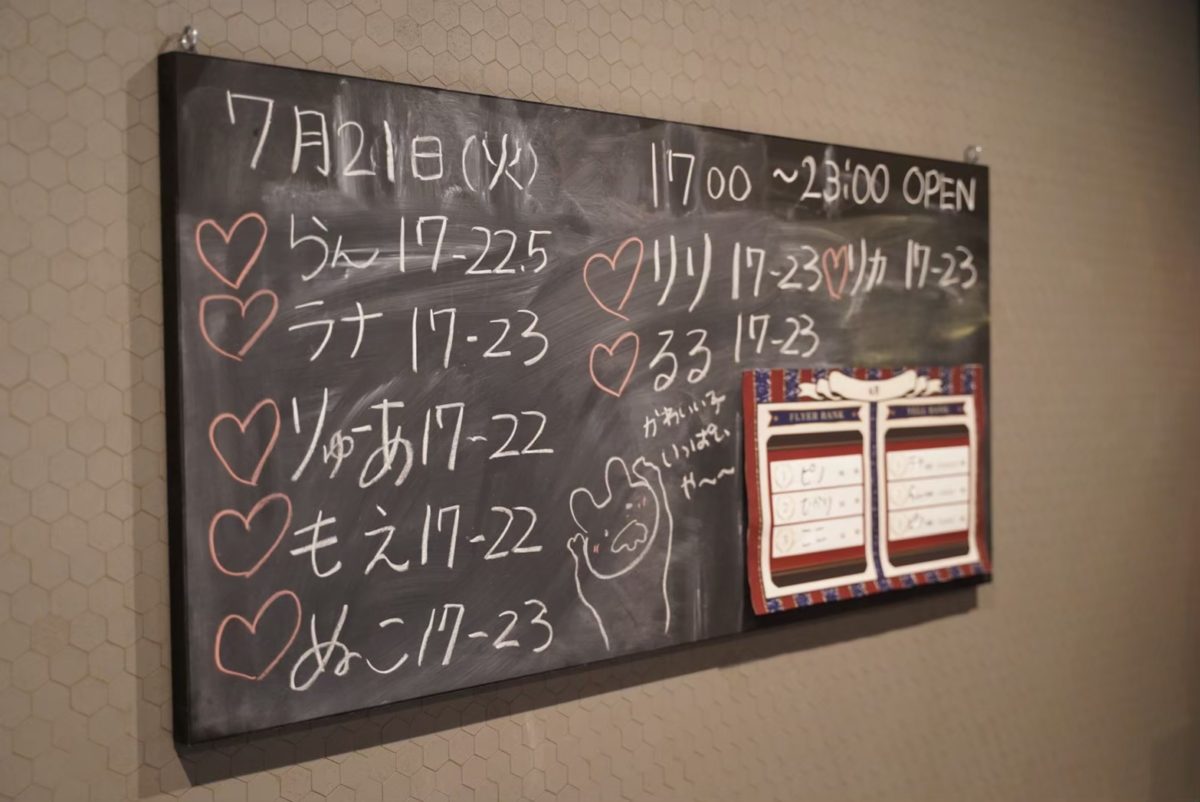 7月21日(火)
1700 ~23:00 OPEN
らん 17-22.5
ラナ 17-23
りゅーあ 17-22
もえ 17-22
ぬこ 17-23
リリ 17-23
リカ 17-23
るる 17-23
かわいい子
いっぱい
や〜〜
FLYER BANK
1 ピノ
2 ひかり
3 ここ
BANK